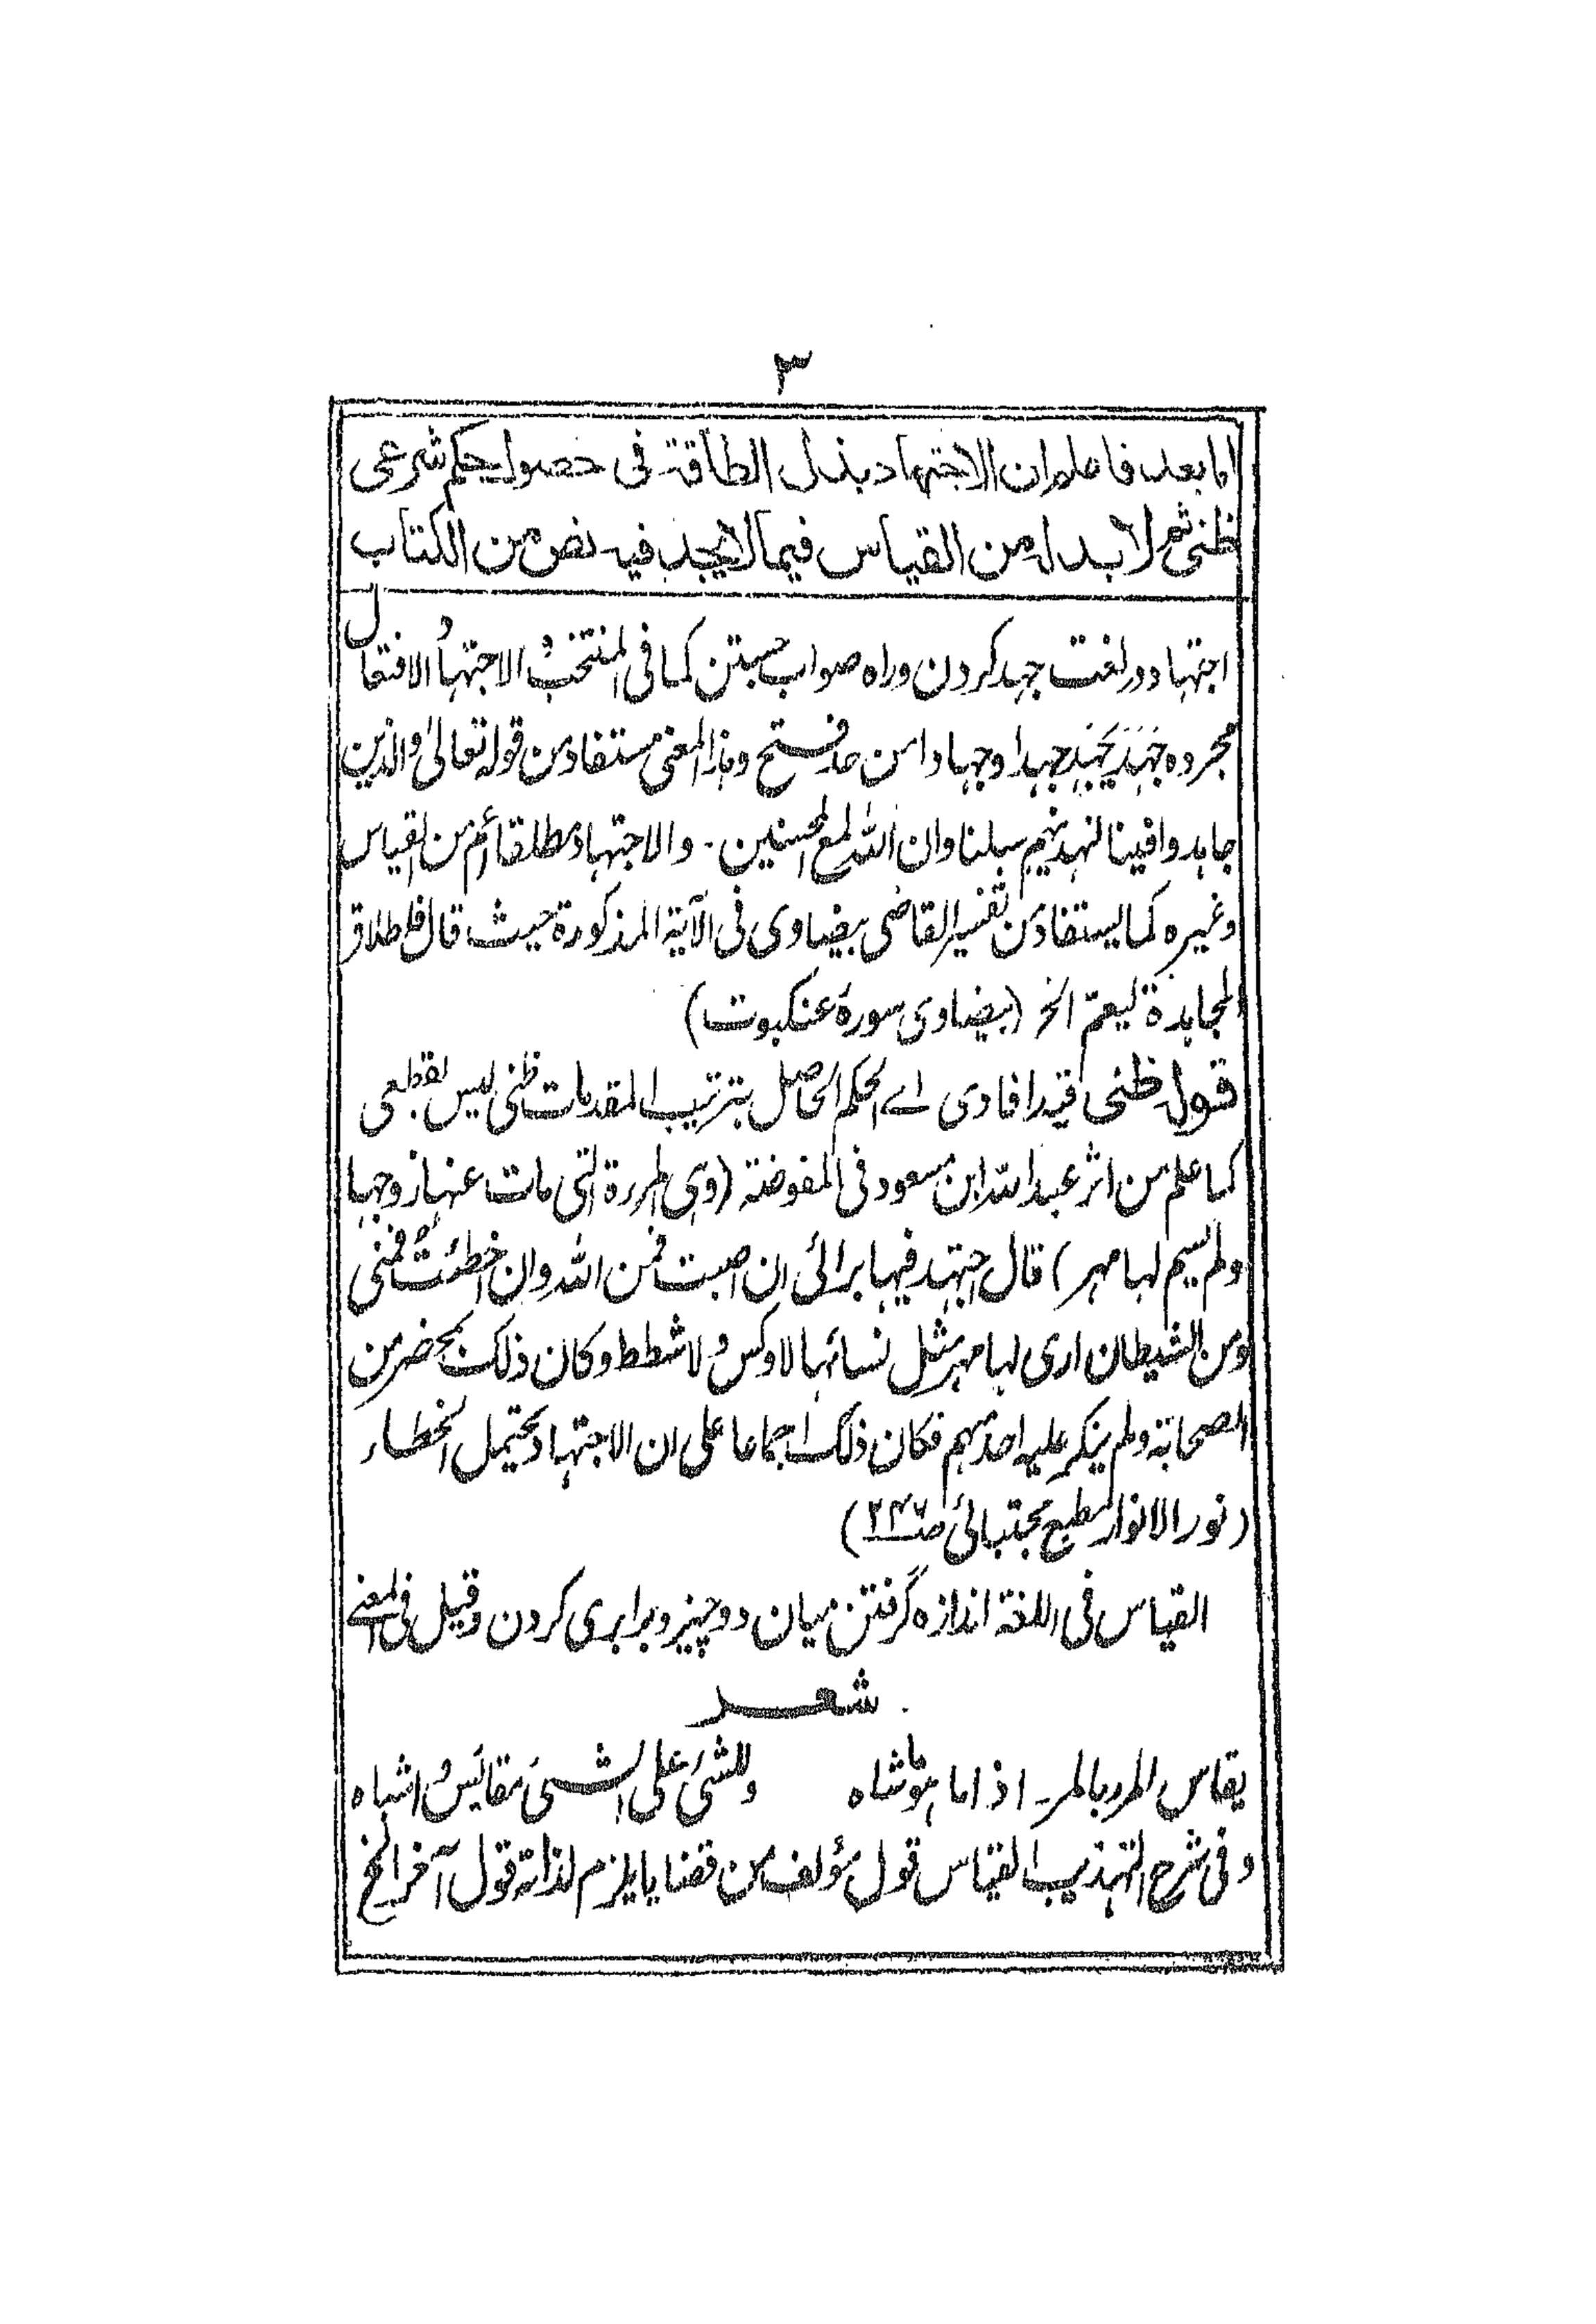 ۳
اما بعد فاعلم ان الاجتهاد بذل الطاقة فی حصول حکم شرعی
ظنی ثم لا بد له من القیاس فیما لا یجد فیه نص من الکتاب
اجتہاد در لغت جہد کردن و راہ صواب جستن کما فی المنتخب الاجتہاد الافتعال
مجردہ جَہَدَ یَجہَد جہدا وجہادا من حد فتح وہذا المعنی مستفاد من قولہ تعالیٰ والذین
جاہدوا فینا لنہدینہم سبلنا وان اللہ لمع المحسنین۔ والاجتہاد مطلقا اعم من القیاس
وغیرہ کما یستفاد من تفسیر القاضی بیضاوی فی الآیۃ المذکورۃ حیث قال فاطلاق
المجاہدۃ لیعمّ الخ (بیضاوی سورۂ عنکبوت)
قولہ ظنی قید افادی اے الحکم الحاصل بترتیب المقدمات ظنی لیس بقطعی
کما علم من اثر عبد اللہ ابن مسعود فی المفوضۃ (وہی المرءۃ التی مات عنہا زوجہا
ولم یسم لہا مہر) قال اجتہد فیہا برائی ان اصبت فمن اللہ وان اخطئتُ فمنی
ومن الشیطان اری لہا مہر مثل نسائہا لا وکس ولا شطط وکان ذلک بمحضر من
الصحابۃ ولم ینکر علیہ احد منہم فکان ذلک اجماعا علی ان الاجتہاد یحتمل الخطاء
(نور الانوار مطبع مجتبائی صـ۲۴۷)
القیاس فی اللغۃ اندازہ گرفتن میان دو چیز و برابری کردن وقیل فی المعنے
شعر
یقاس المرء بالمرء اذا ما ہو ماشاہ وللشئ علی الشئ مقائیس و اشباہ
وفی شرح التہذیب القیاس قول مؤلف من قضایا یلزم لذاتہ قول آخر الخ